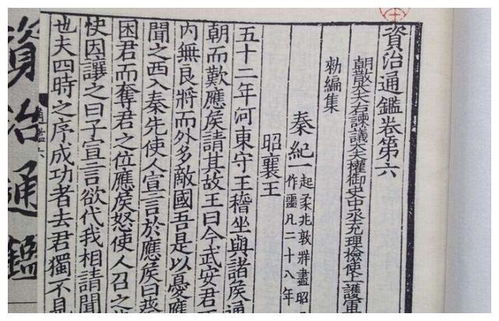 資治通鑑卷第六
朝散大夫右諫議大夫權御史中丞充理檢使上護軍
勑編集
秦紀一
起柔兆敦牂盡昭
作噩凡二十八年
昭襄王
五十二年河東守王稽坐與諸侯通
朝而歎應侯請其故王曰今武安君
內無良將而外多敵國吾是以憂應
聞之西入秦先使人宣言於應侯曰蔡
困君而奪君之位應侯怒使人召之
使因讓之曰子宣言欲代我相請聞
也夫四時之序成功者去君獨不見
資治通鑑